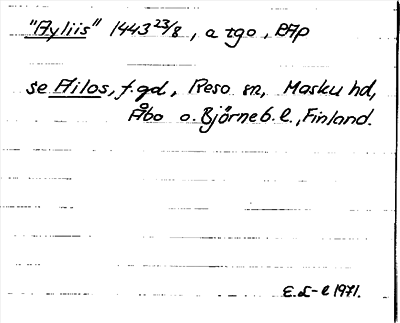 "Ayliis" 1443 23/8, a tgo, RAp
se Ailos, f.gd, Reso sn, Masku hd,
Åbo o. Björneb. l., Finland.
1971.